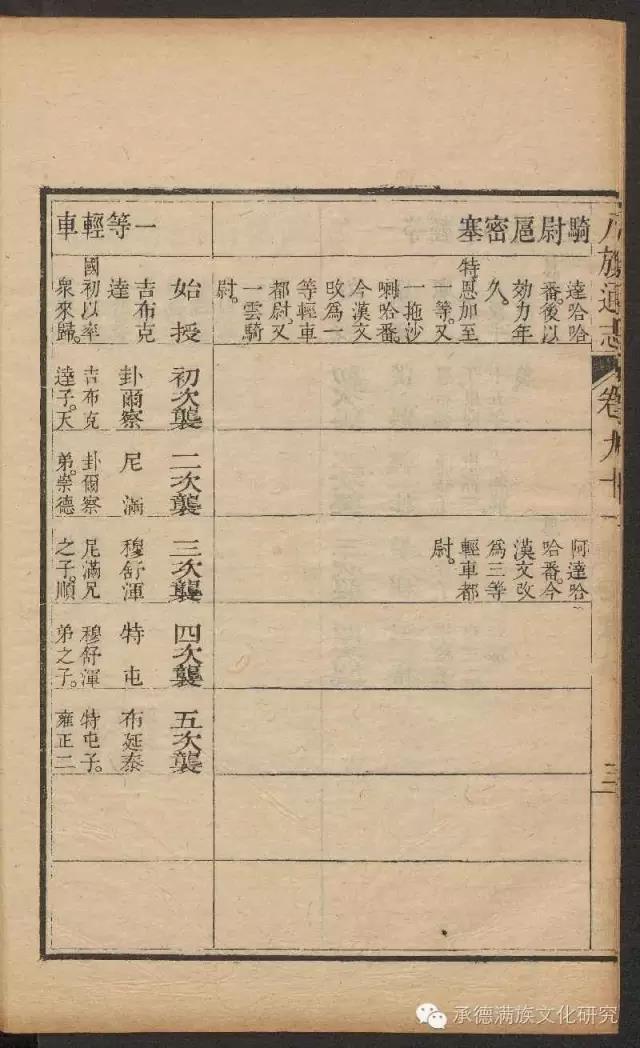 八旗通志
卷九十一
三
騎尉扈密塞
達哈哈
番後以
効力年
久。
特恩加至
一等。又
一拖沙
喇哈番。
今漢文
改爲一
等輕車
都尉。又
一雲騎
尉。
阿達哈
哈番。今
漢文改
爲三等
輕車都
尉。
一等輕車
始授
吉布克
達
國初以率
衆來歸。
初次襲
卦爾察
吉布克
達子。天
二次襲
尼滿
卦爾察
弟。崇德
三次襲
穆舒渾
尼滿兄
之子。順
四次襲
特屯
穆舒渾
弟之子。
五次襲
布延泰
特屯子。
雍正二
承德满族文化研究